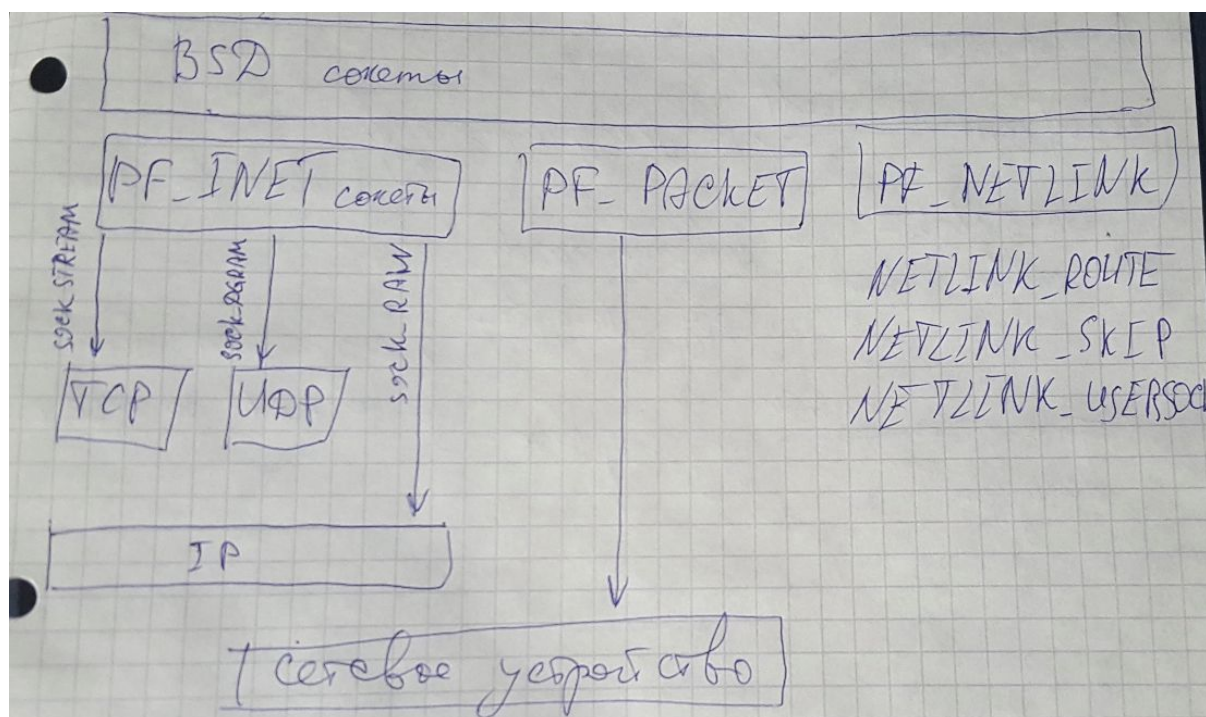 BSD сокеты
PF_INET сокеты
PF_PACKET
PF_NETLINK
SOCK STREAM
SOCK DGRAM
SOCK_RAW
NETLINK_ROUTE
NETLINK_SKIP
NETLINK_USERSOC
TCP
UDP
IP
сетевое устройство